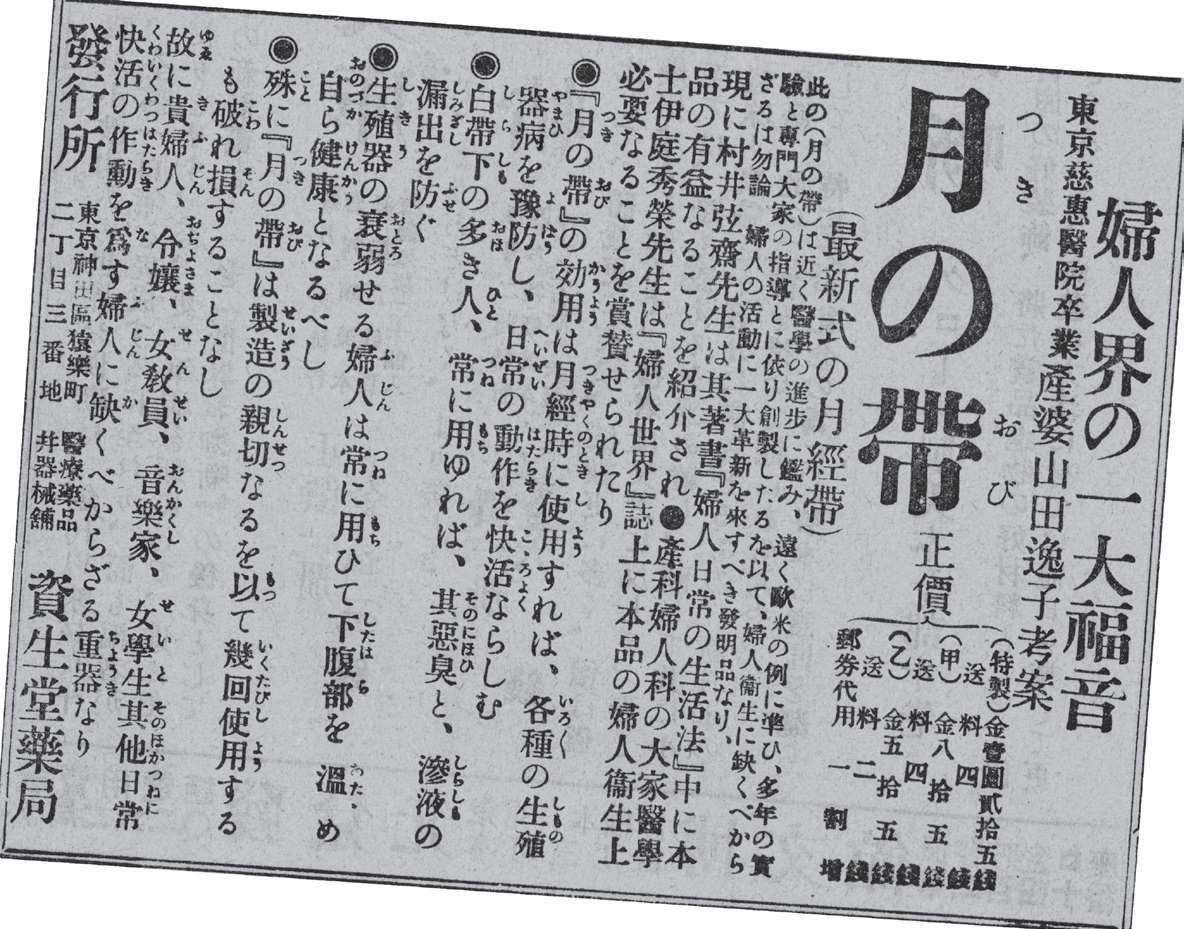 婦人界の一大福音
東京慈惠醫院卒業産婆山田逸子考案
月の帶
つきおび
正價
(特製)金壹圓貳拾五錢
送料四錢
(甲)金八拾五錢
送料四錢
(乙)金五拾五錢
送料二錢
郵券代用一割增
(最新式の月經帶)
此の(月の帶)は近く醫學の進步に鑑み、遠く歐米の例に準ひ、多年の實
驗と專門大家の指導とに依り創製したるを以て、婦人衞生に缺くべから
ざるは勿論 婦人の活動に一大革新を來すべき發明品なり、
現に村井弦齋先生は其著書『婦人日常の生活法』中に本
品の有益なることを紹介され●產科婦人科の大家醫學
士伊庭秀榮先生は『婦人世界』誌上に本品の婦人衞生上
必要なることを賞贊せられたり
●『月の帶』の効用は月經時に使用すれば、各種の生殖
器病を豫防し、日常の動作を快活ならしむ
●白帶下の多き人、常に用ゆれば、其惡臭と、滲液の
漏出を防ぐ
●生殖器の衰弱せる婦人は常に用ひて下腹部を溫め
自ら健康となるべし
●殊に『月の帶』は製造の親切なるを以て幾回使用する
も破れ損することなし
故に貴婦人、令孃、女敎員、音樂家、女學生其他日常
快活の作動を爲す婦人に缺くべからざる重器なり
發行所
東京神田區猿樂町
二丁目三番地
醫療藥品
幷器械舖
資生堂藥局